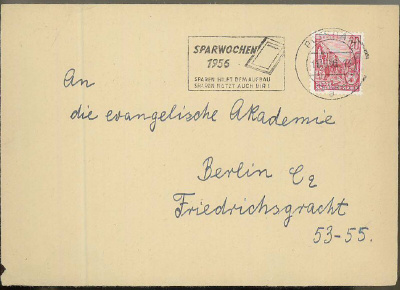 SPARWOCHEN
1956
SPAREN HILFT DEM AUFBAU
SPAREN NÜTZT AUCH DIR!
An
die evangelische Akademie
Berlin C2
Friedrichsgracht
53-55.